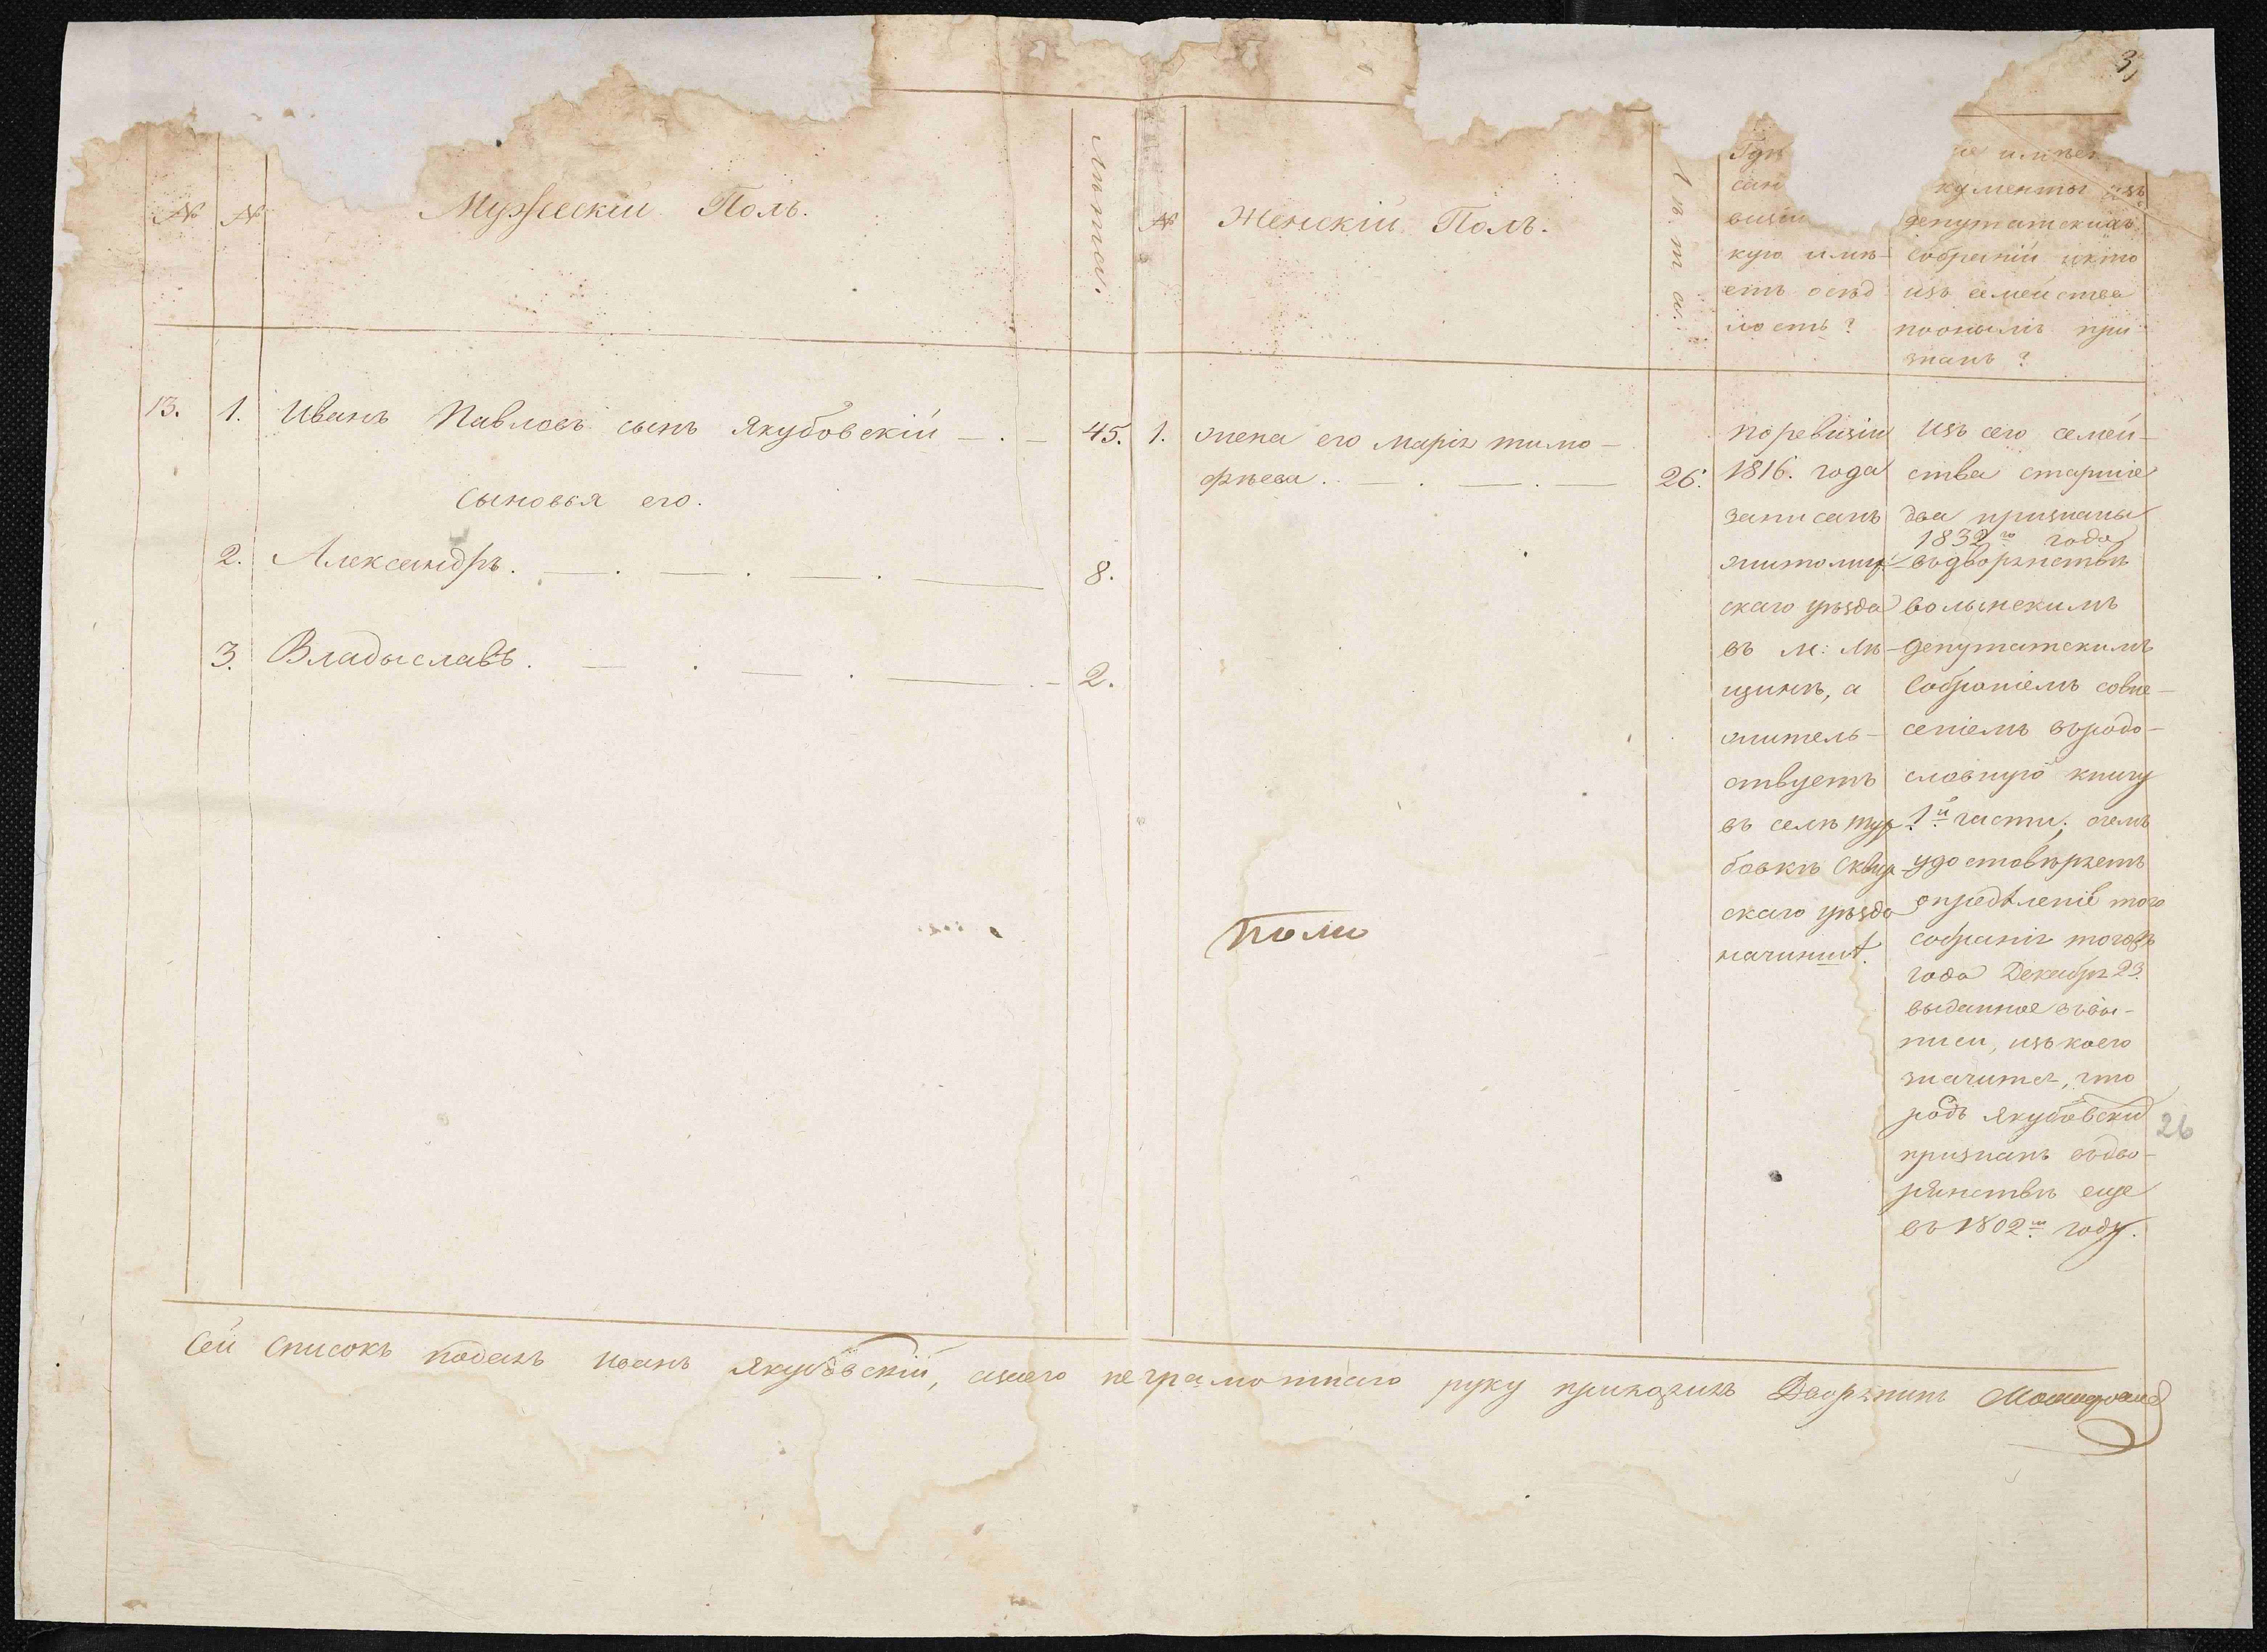 3,
№ № Мужескій Полъ. Лѣта. № Женскій Полъ. Лѣта.
Гдѣ
сан
визіи
кую имѣ-
етъ осѣд
лость?
кументы изъ
депутатскихъ
собраній и кто
изъ семейства
по онымъ при
знанъ?
13. 1. Иванъ Павловъ сынъ Якубовскій 45.
Сыновья его.
2. Александръ. 8.
3. Владыславъ. 2.
1. жена его Марія Тимо-
фѣева. 26.
По ревизіи
1816. года
записанъ
житомир-
скаго уѣзда
въ м: Лѣ-
щинѣ, а
житель-
ствуетъ
въ селѣ Тур-
бовкѣ Сквир-
скаго уѣзда
на чиншѣ.
Изъ сего семей-
ства старшіе
два признаны
1832го года
въ дворянствѣ
волынскимъ
депутатскимъ
Собраніемъ со вне-
сеніемъ въ родо-
словную книгу
1й части; о чемъ
удостовѣряетъ
опредѣленіе того
собранія тогожъ
года Декабря 23.
выданное въ вы-
писи, изъ коего
значится, что
родъ Якубовски
признанъ въ дво-
рянствѣ еще
въ 1802м году.
26
Сей списокъ подалъ Иванъ Якубовскій, а за его неграмотнаго руку приложилъ Дворянинъ